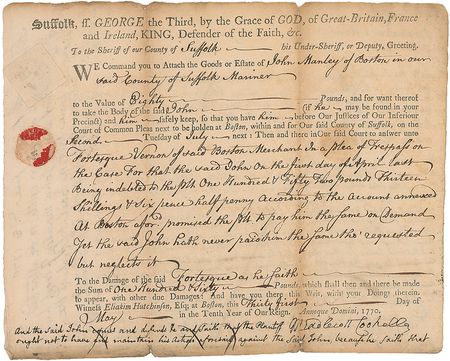 Suffolk, ſſ. GEORGE the Third, by the Grace of GOD, of Great-Britain, France
and Ireland, KING, Defender of the Faith, &c.
To the Sheriff of our County of Suffolk his Under-Sheriff, or Deputy, Greeting,
WE Command you to Attach the Goods or Eſtate of John Manley of Boston in our
said County of Suffolk Mariner
to the Value of Eighty Pounds, and for want thereof
to take the Body of the ſaid John (if he may be found in your
Precinct) and him ſafely keep, ſo that you have him before Our Juſtices of Our Inferiour
Court of Common Pleas next to be holden at Boſton, within and for Our ſaid County of Suffolk, on
Second Tueſday of July next: Then and there in Our ſaid Court to anſwer unto
Fortesque Vernon of said Boston Merchant In a plea of Trespass on
the Case For that the said John on the first day of April last
Being indebted to the Plt. One Hundred & Fifty Two pounds Thirteen
Shillings & Six pence half penny According to the Account annexed
At Boston afors.d promised the Plt to pay him the same on Demand
Yet the said John hath never paid him the same tho' requested
but neglects it
To the Damage of the ſaid Fortesque as he saith
the Sum of One Hundred Sixty Pounds, which ſhall then and there be made
to appear, with other due Damages: And have you there this Writ, with your Doings therein.
Witneſs Eliakim Hutchinſon, Eſq; at Boſton, this Thirty first Day of
May in the Tenth Year of Our Reign. Annoque Domini, 1770.
And the said John comes and defends &c and saith that the Plantiff
ought not to have and maintain his action aforesaid against the said John, because he saith that